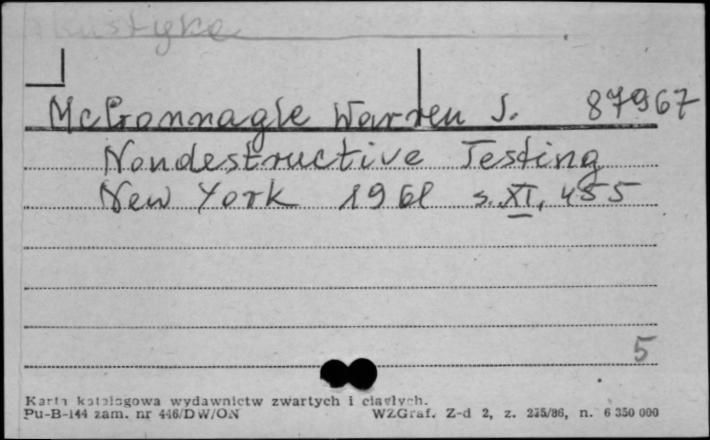 akustyka
McGonnagle Warren J. 87967
Nondestructive Testing
New York 1961 s. XI, 455
5
Karta katalogowa wydawnictw zwartych i ciągłych.
Pu-B-144 zam. nr 446/DW/ON WZGraf. Z-d 2, z. 235/86, n. 6 350 000